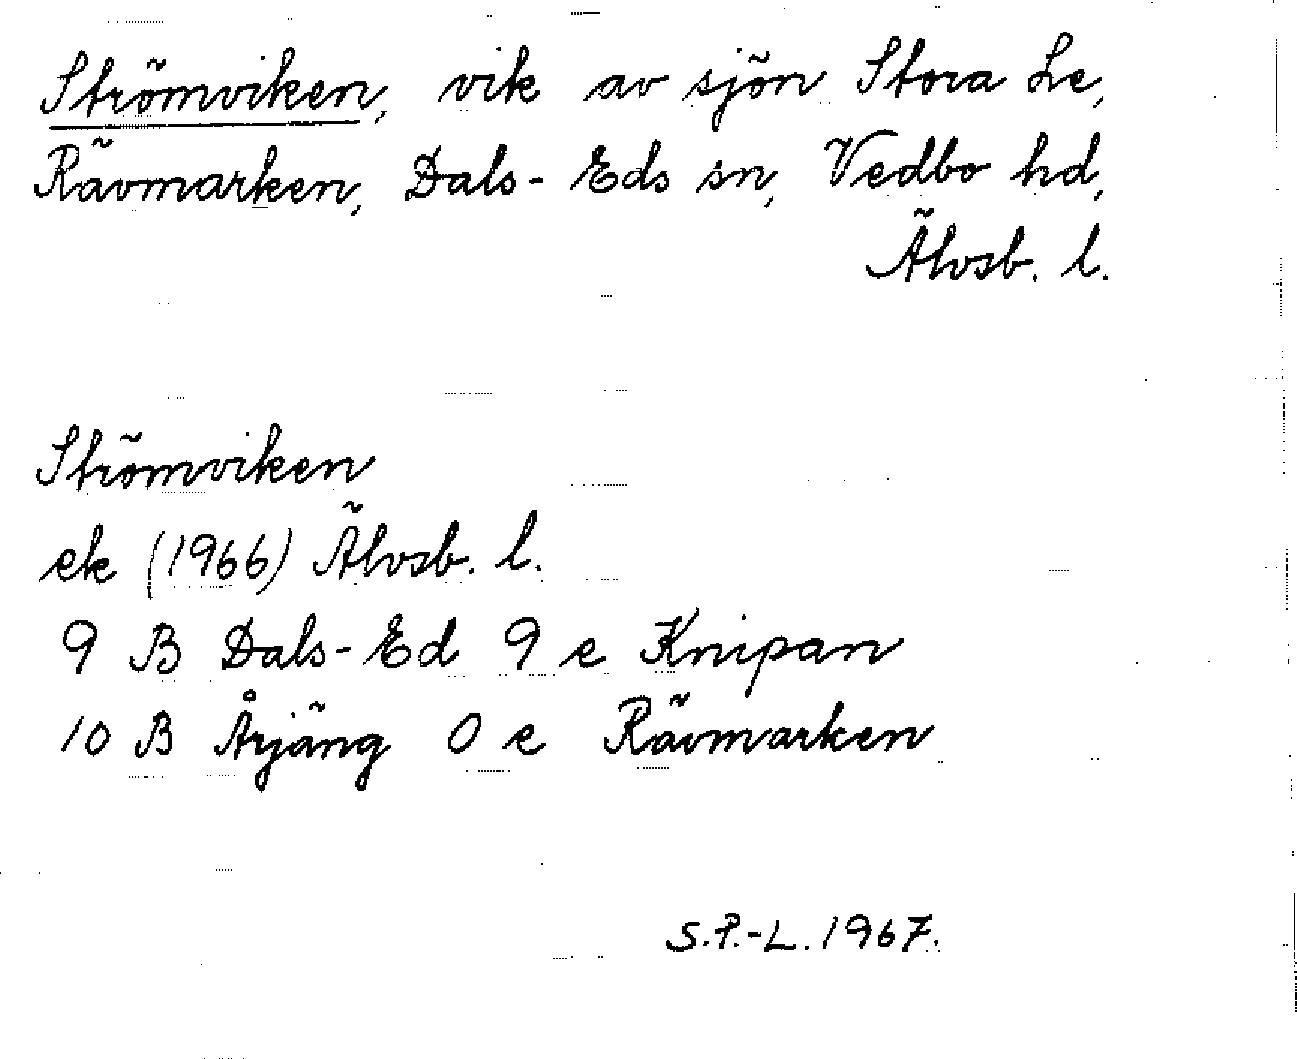 Strömviken, vik av sjön Stora Le,
Rävmarken, Dals-Eds sn, Vedbo hd,
Älvsb. l.
Strömviken
ek (1966) Älvsb. l.
9 B Dals-Ed 9 e Knipan
10 B Årjäng 0 e Rävmarken
S.P.-L. 1967.